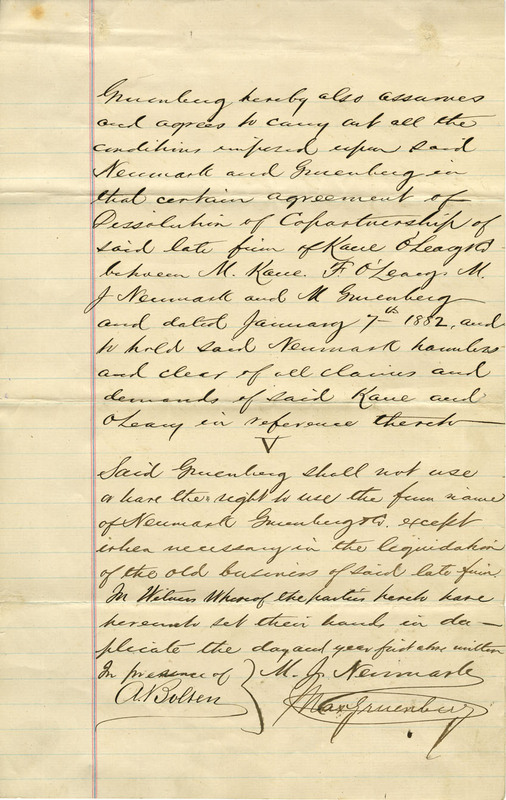 Gruenberg hereby also assumes
and agrees to carry out all the
conditions imposed upon said
Neumark and Gruenberg in
that certain agreement of
Dissolution of Copartnership of
said late firm of Kane O'Leary & Co
between M. Kane. F. O'Leary. M.
J Neumark and M Gruenberg
and dated January 7th 1882, and
to hold said Neumark harmless
and clear of all claims and
demands of said Kane and
O'Leary in reference thereto
V
Said Gruenberg shall not use
or have the right to use the firm name
of Neumark Gruenberg & Co. except
when necessary in the liquidation
of the old business of said late firm.
In Witness Whereof the parties hereto have
hereunto set their hands in du-
plicate the day and year first above written
In presence of } M. J. Neumark
A. Bolten Max Gruenberg